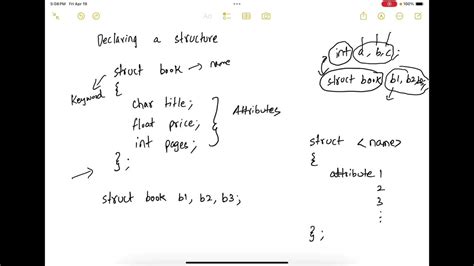 3:08 PM Fri Apr 19
Declaring a structure
struct book → name
Keyword
{
char title;
float price;
int pages;
Attributes
};
struct book b1, b2, b3;
int a, b, c;
struct book b1, b2
struct <name>
{
attribute 1
2
3
};